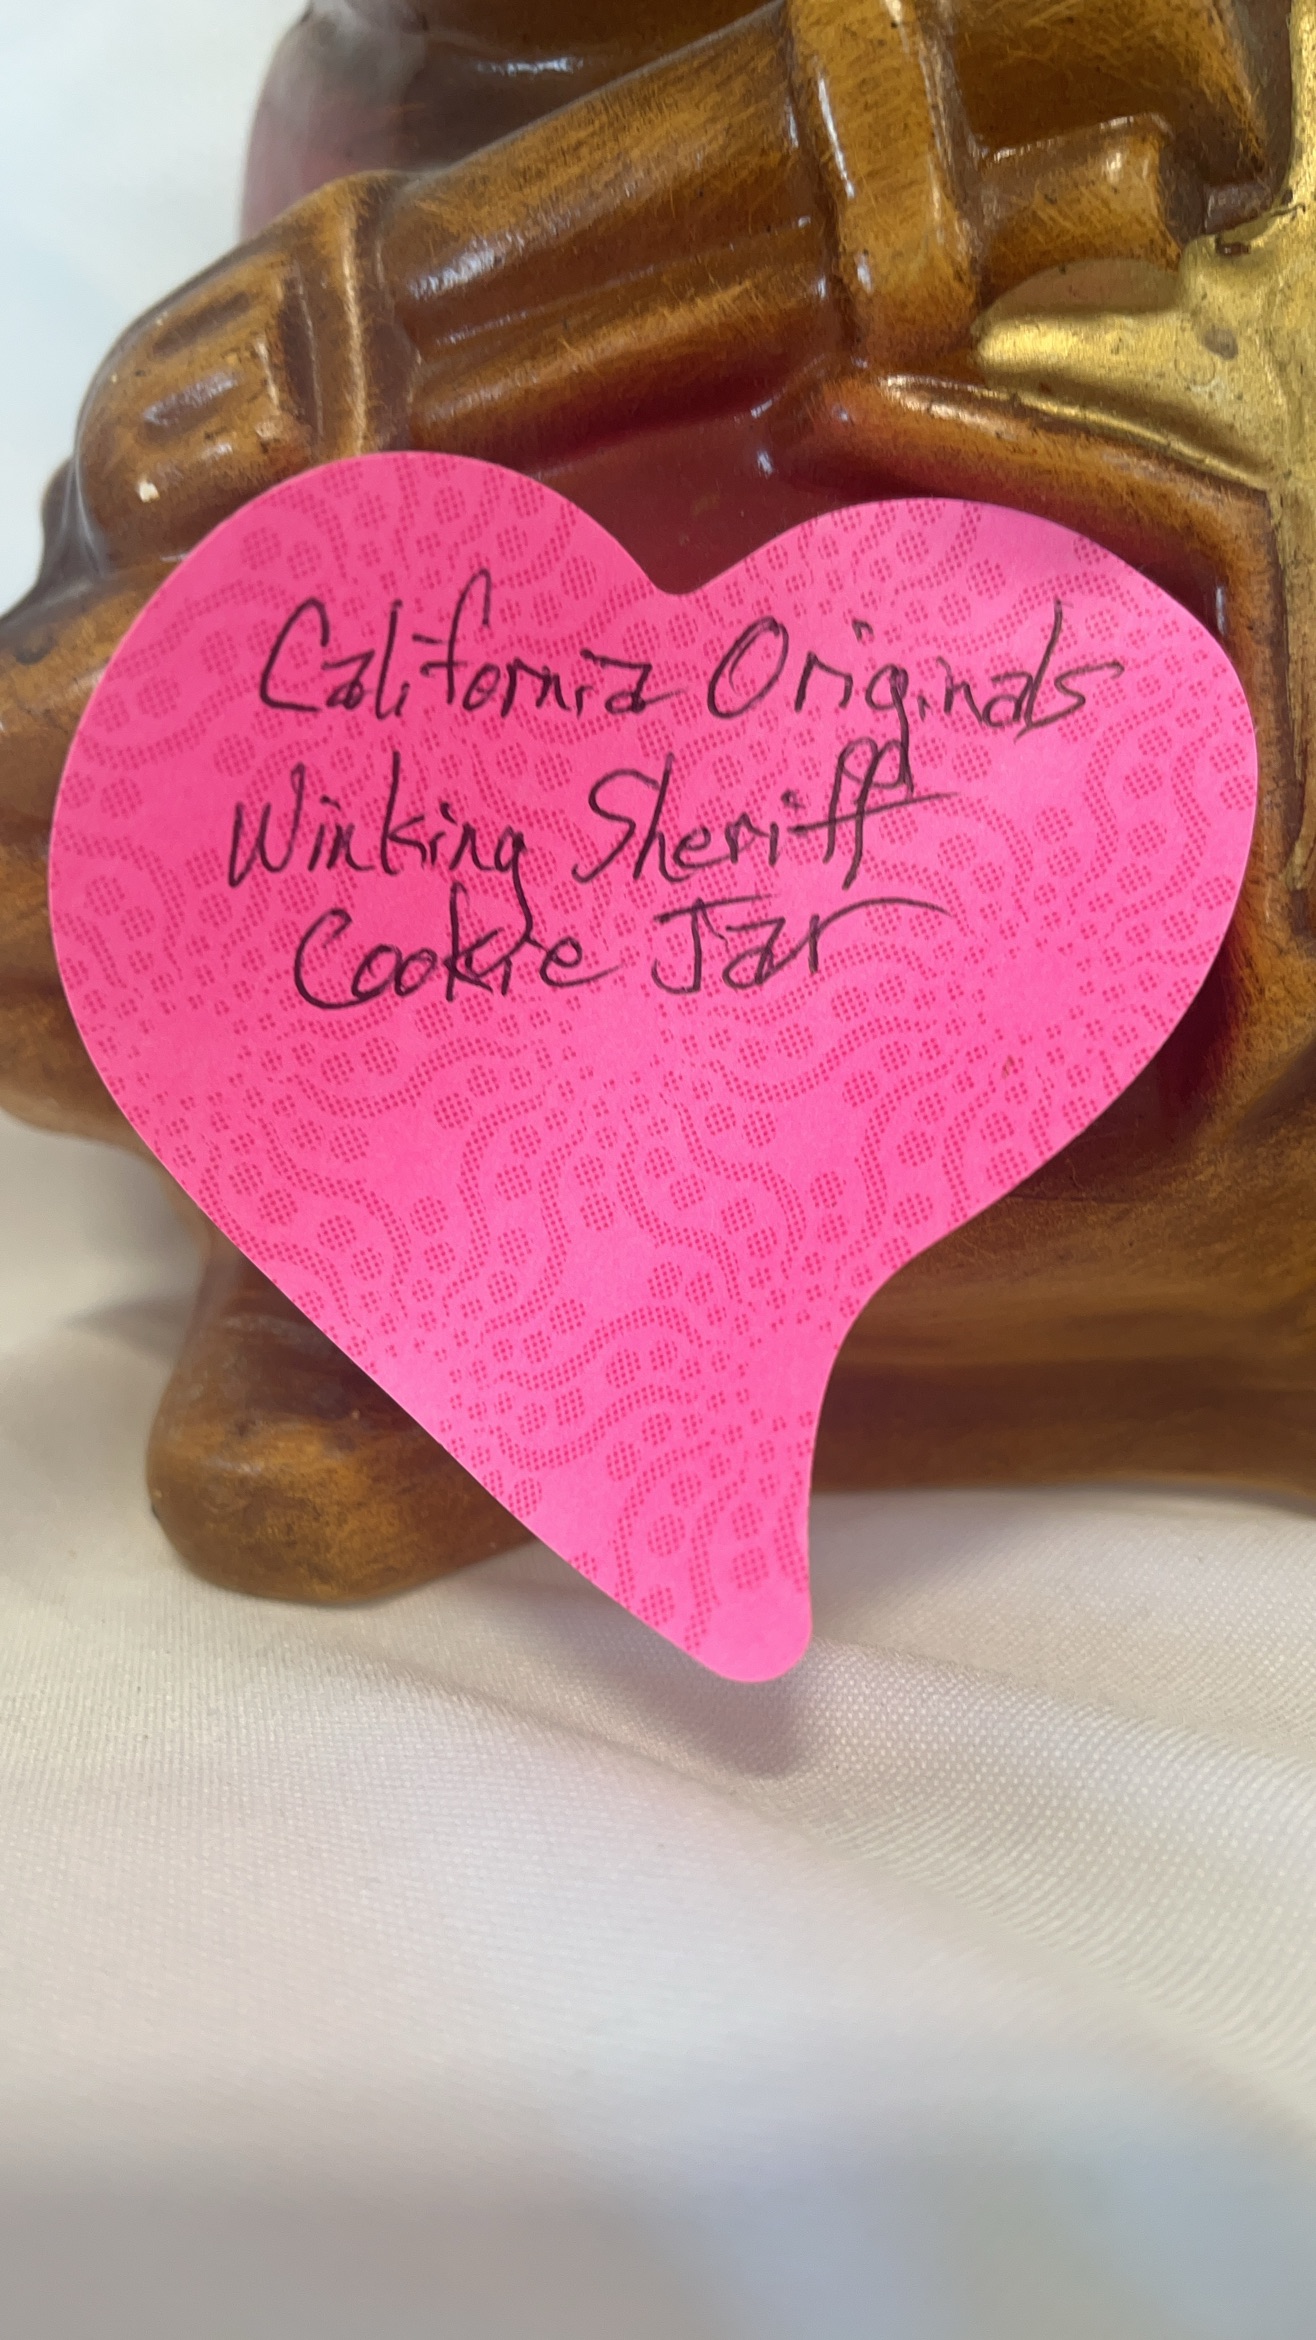 California Originals
Winking Sheriff
Cookie Jar